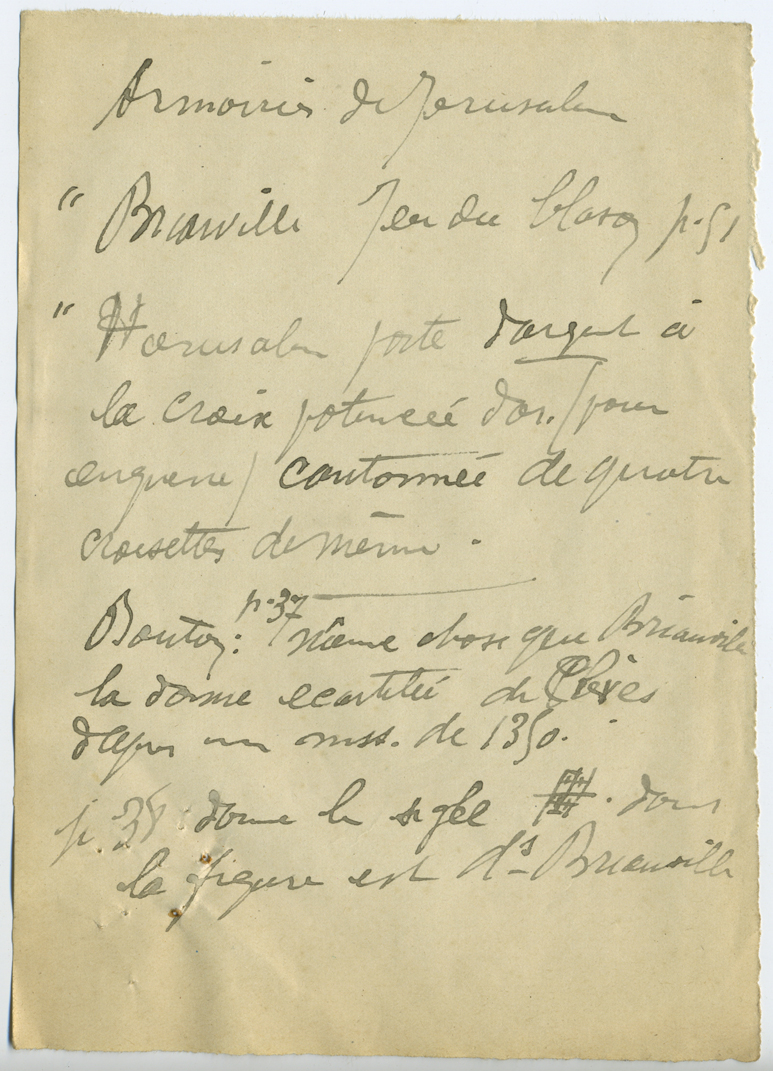 Armoiries de Jerusalem
" Brianville Jeu du blason p. 51
" Hierusalem porte d'argent à
la croix potencée d'or. (pour
enquerre) cantonnée de quatre
croisettes de même.
Bouton: p. 37 même chose que Brianville
la donne ecartelée de Clèves
d'apres un mss. de 1350.
p. 38 donne le sigle dont
la figure est ds Brianville